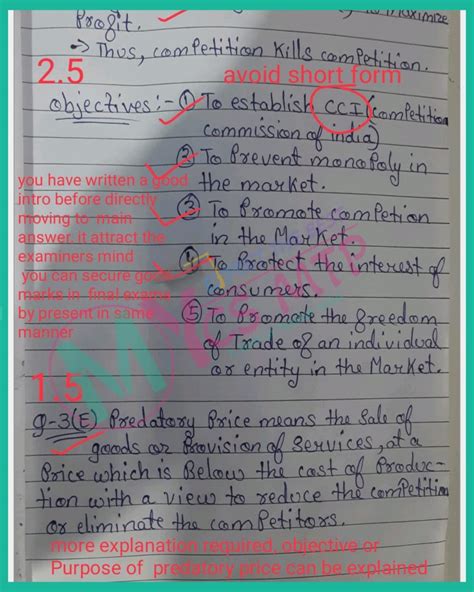 Profit.
to maximize
-> Thus, competition kills competition.
2.5
avoid short form
objectives:- ① To establish CCI (Competition
commission of india)
② To Prevent monopoly in
the market.
you have written a good
intro before directly
moving to main
answer. it attract the
examiners mind
you can secure good
marks in final exams
by present in same
manner
③ To Promote competion
in the Market.
④ To Protect the interest of
consumers.
⑤ To Promote the freedom
of Trade of an individual
or entity in the Market.
1.5
g-3(E) Predatory Price means the Sale of
goods or Provision of Services, at a
Price which is Below the cost of Produc-
tion with a view to reduce the competition
or eliminate the competitors.
more explanation required, objective or
Purpose of predatory price can be explained